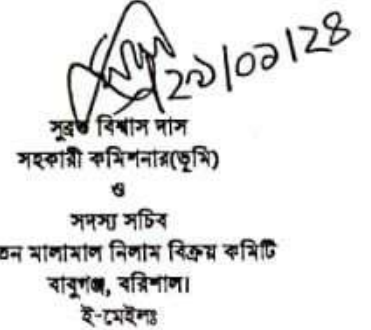 সুব্রত বিশ্বাস দাস
সহকারী কমিশনার(ভূমি)
ও
সদস্য সচিব
মালামাল নিলাম বিক্রয় কমিটি
বাবুগঞ্জ, বরিশাল।
ই-মেইলঃ